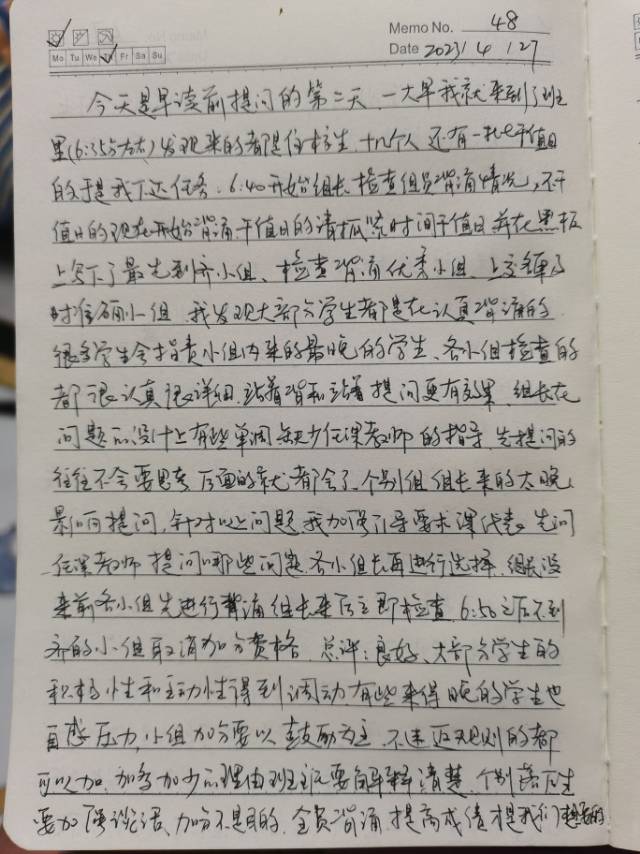 Memo No. 48
Mo Tu We Th Fr Sa Su
Date 2023 / 4 / 27
今天是早读前提问的第二天,一大早我就来到了班
里(6:35分左右)发现来的都是住校生,十几个人,还有一批干值日
的于是我下达任务。6:40开始组长检查组员背诵情况,不干
值日的现在开始背诵干值日的请抓紧时间干值日并在黑板
上写下了最先到齐小组、检查背诵优秀小组、上交
时准确小组,我发现大部分学生都是在认真背诵的
很多学生会指责小组内来的最晚的学生、各小组检查的
都很认真很详细,站着背和站着提问更有效果,组长在
问题的设计上有些单调缺少任课教师的指导,先提问的
往往不会要思考,后面的就都会了,个别组组长来的太晚
影响提问,针对以上问题,我加强引导要求课代表先问
任课教师提问哪些问题,各小组长再进行选择,组长没
来前各小组先进行背诵组长来后立即检查,6:50之后不到
齐的小组取消加分资格,总评:良好、大部分学生的
积极性和主动性得到调动,有些来得晚的学生也
自感压力,小组加分要以鼓励为主,不违返规则的都
可以加,加多加少的理由班主任要解释清楚,个别落后生
要加强谈话,加分不是目的,全员背诵,提高成绩提我们